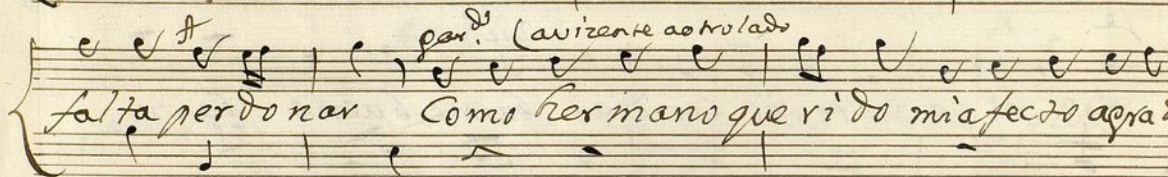 (a vizente aotro lado
falta perdonar Como hermano querido mi afecto